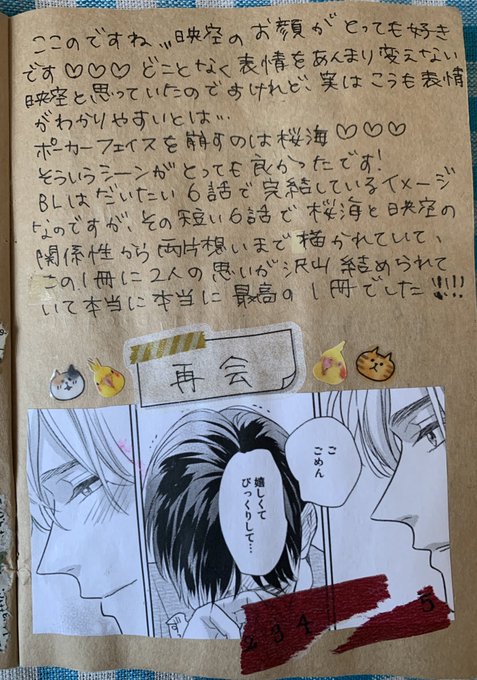 ここのですね〃映空のお顔がとっても好き
です♡♡♡どことなく表情をあんまり変えない
映空と思っていたのですけれど、実はこうも表情
がわかりやすいとは…
ポーカーフェイスを崩すのは桜海♡♡♡
そういうシーンがとっても良かったです!
BLはだいたい6話で完結しているイメージ
なのですが、その短い6話で桜海と映空の
関係性から両片想いまで描かれていて、
この1冊に2人の思いが沢山結められて
いて本当に本当に最高の1冊でした!!!!
再会
ご
ごめん
嬉しくて
びっくりして…
2 3 4
5